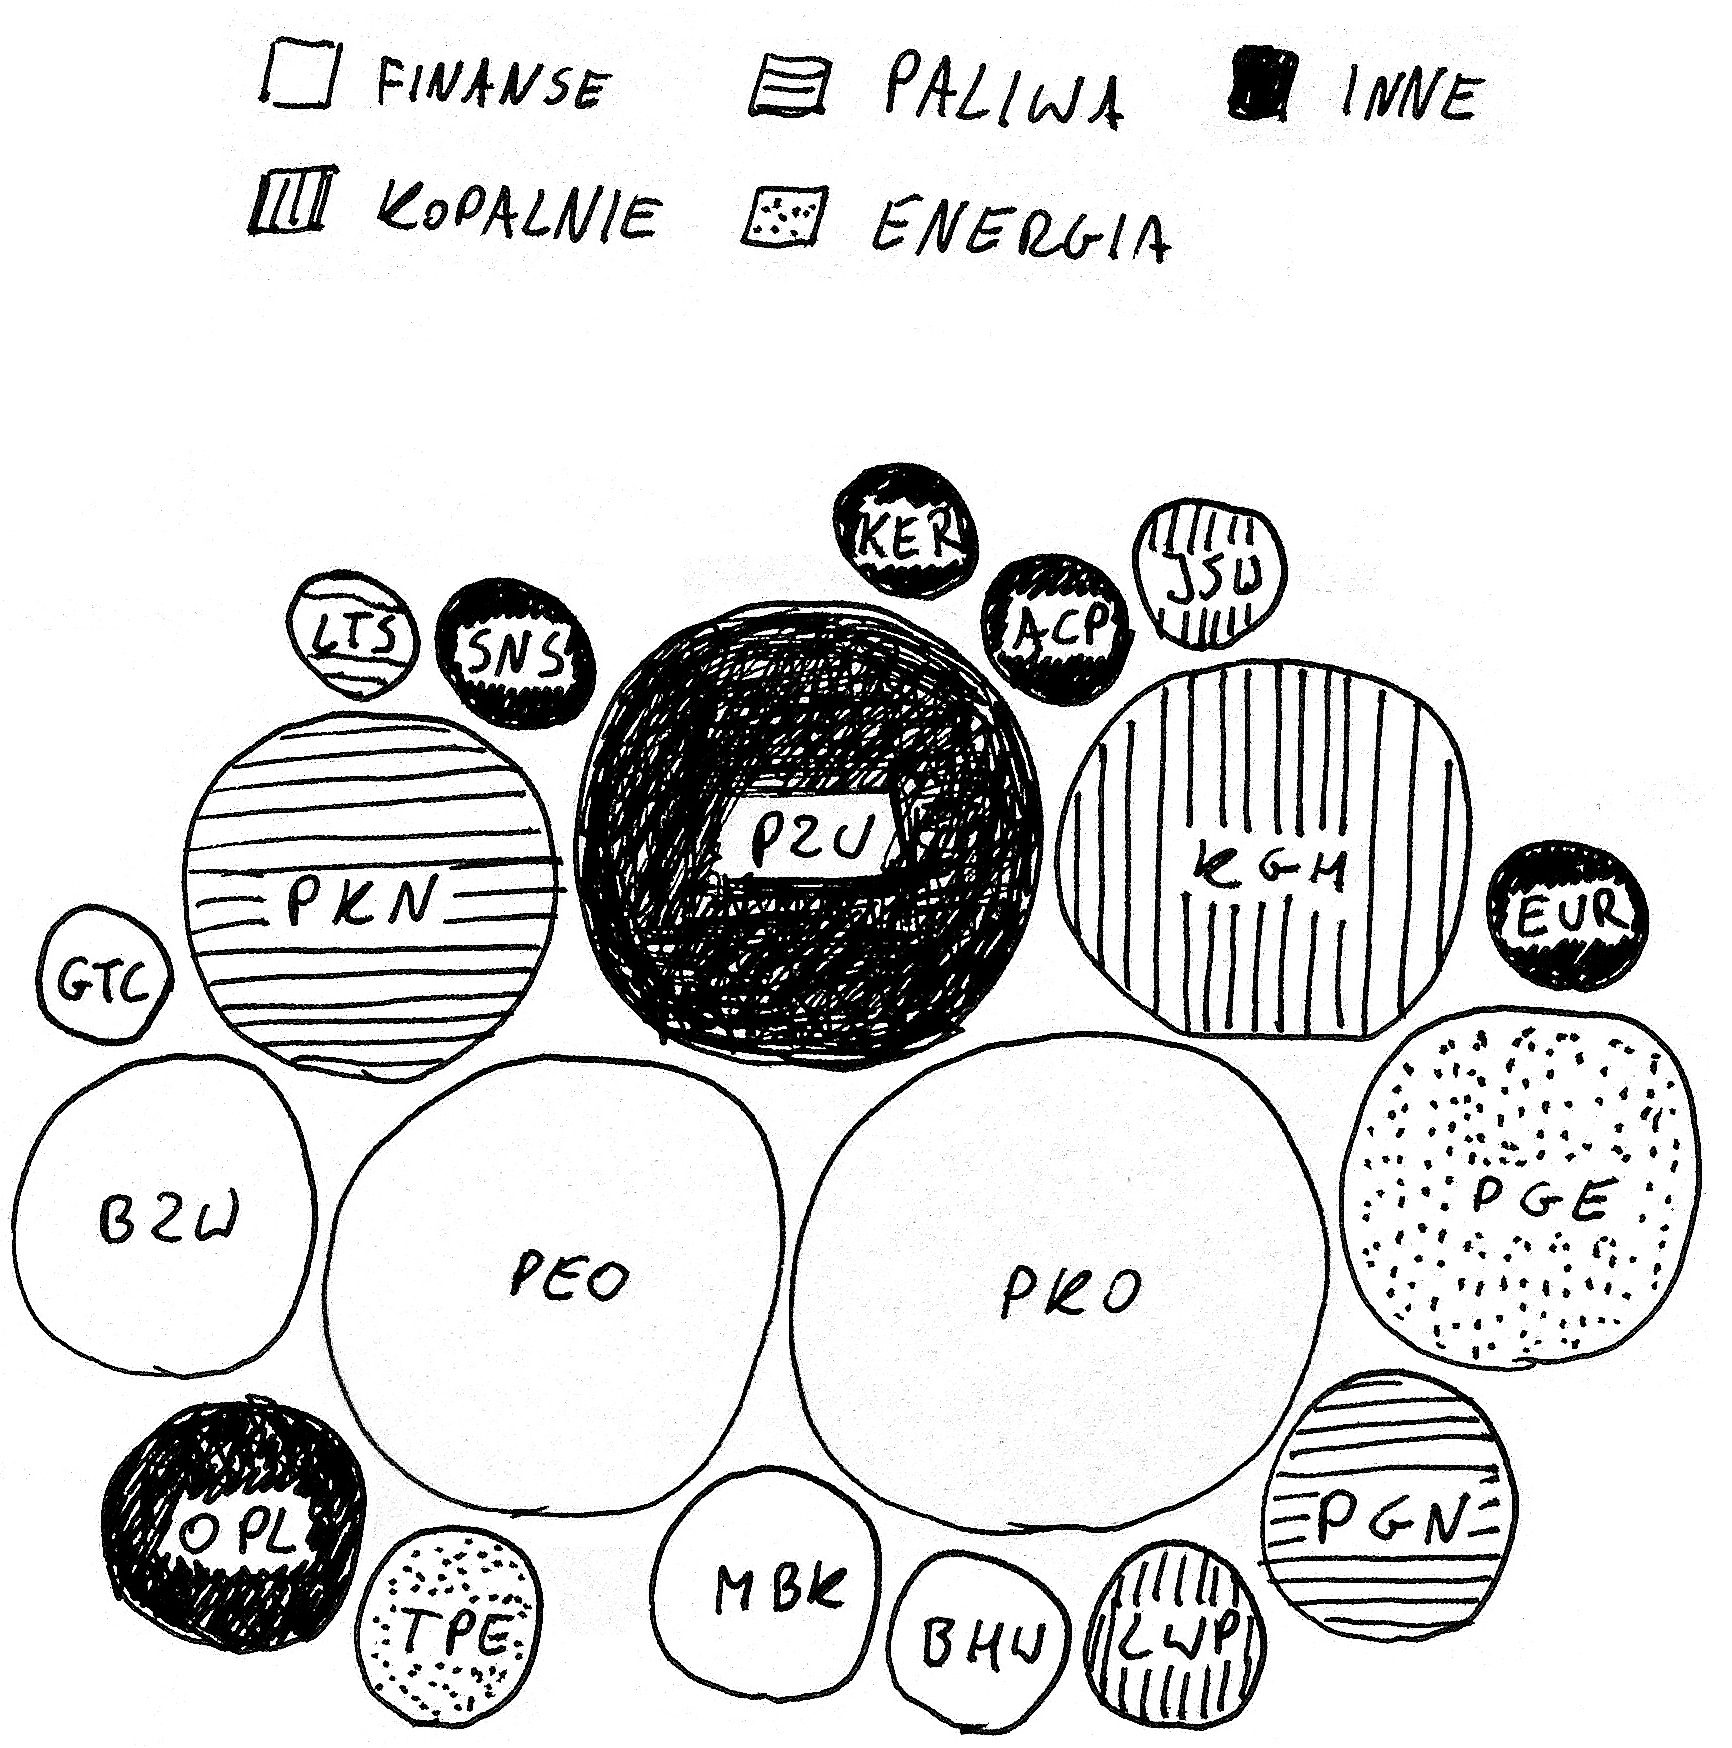 FINANSE PALIWA INNE
KOPALNIE ENERGIA
KER
ACP JSW
LTS SNS
PZU
KGH
PKN
EUR
GTC
BZW
PEO
PKO
PGE
OPL
PGN
TPE
MBK
BHW
LWP